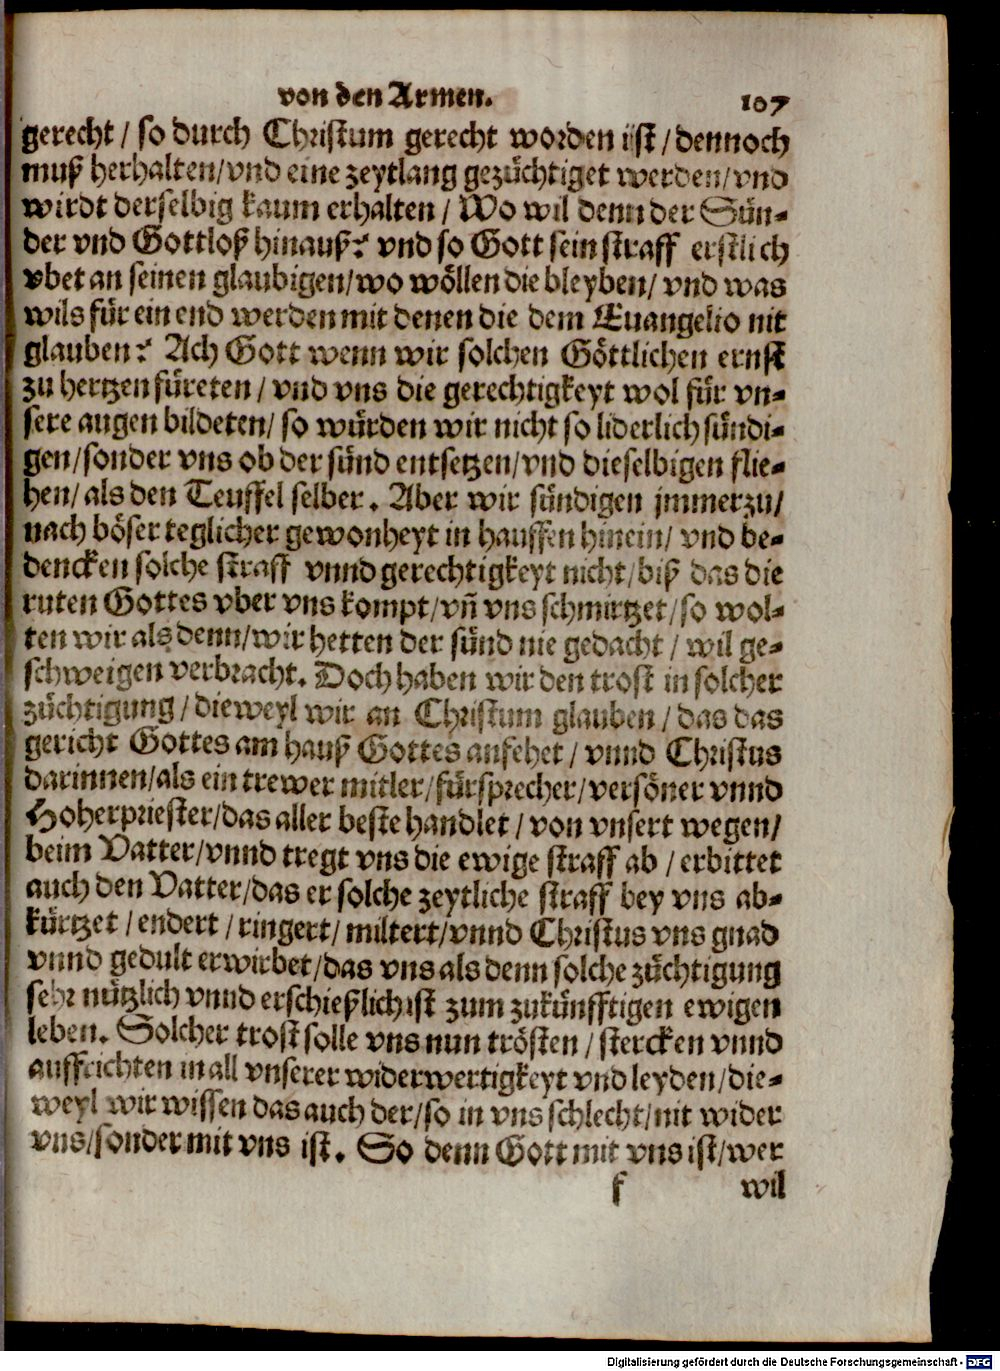 von den Armen. 107
gerecht / so durch Christum gerecht worden ist / dennoch
muß herhalten/vnd eine zeytlang gezüchtiget werden/vnd
wirdt derselbig kaum erhalten / Wo wil denn der Sün-
der vnd Gottloß hinauß? vnd so Gott sein straff erstlich
vbet an seinen glaubigen/wo wöllen die bleyben/ vnd was
wils für ein end werden mit denen die dem Euangelio nit
glauben? Ach Gott wenn wir solchen Göttlichen ernst
zu hertzen füreten / vnd vns die gerechtigkeyt wol für vn-
sere augen bildeten/ so würden wir nicht so liderlich sündi-
gen/sonder vns ob der sünd entsetzen/vnd dieselbigen flie-
hen/ als den Teuffel selber. Aber wir sündigen jmmerzu/
nach böser teglicher gewonheyt in hauffen hinein/ vnd be-
dencken solche straff vnnd gerechtigkeyt nicht/biß das die
ruten Gottes vber vns kompt/vñ vns schmirtzet/so wol-
ten wir als denn/wir hetten der sünd nie gedacht / wil ge-
schweigen verbracht. Doch haben wir den trost in solcher
züchtigung / dieweyl wir an Christum glauben / das das
gericht Gottes am hauß Gottes anfehet / vnnd Christus
darinnen/als ein trewer mitler/fürsprecher/versöner vnnd
Hoherpriester/das aller beste handlet / von vnsert wegen/
beim Vatter/vnnd tregt vns die ewige straff ab / erbittet
auch den Vatter/das er solche zeytliche straff bey vns ab-
kürtzet / endert / ringert/ miltert/vnnd Christus vns gnad
vnnd gedult erwirbet/das vns als denn solche züchtigung
sehr nützlich vnnd erschießlich ist zum zukünfftigen ewigen
leben. Solcher trost solle vns nun trösten / stercken vnnd
auffrichten in all vnserer widerwertigkeyt vnd leyden/die-
weyl wir wissen das auch der/so in vns schlecht/nit wider
vns/sonder mit vns ist. So denn Gott mit vns ist/wer
f wil
Digitalisierung gefördert durch die Deutsche Forschungsgemeinschaft - DFG